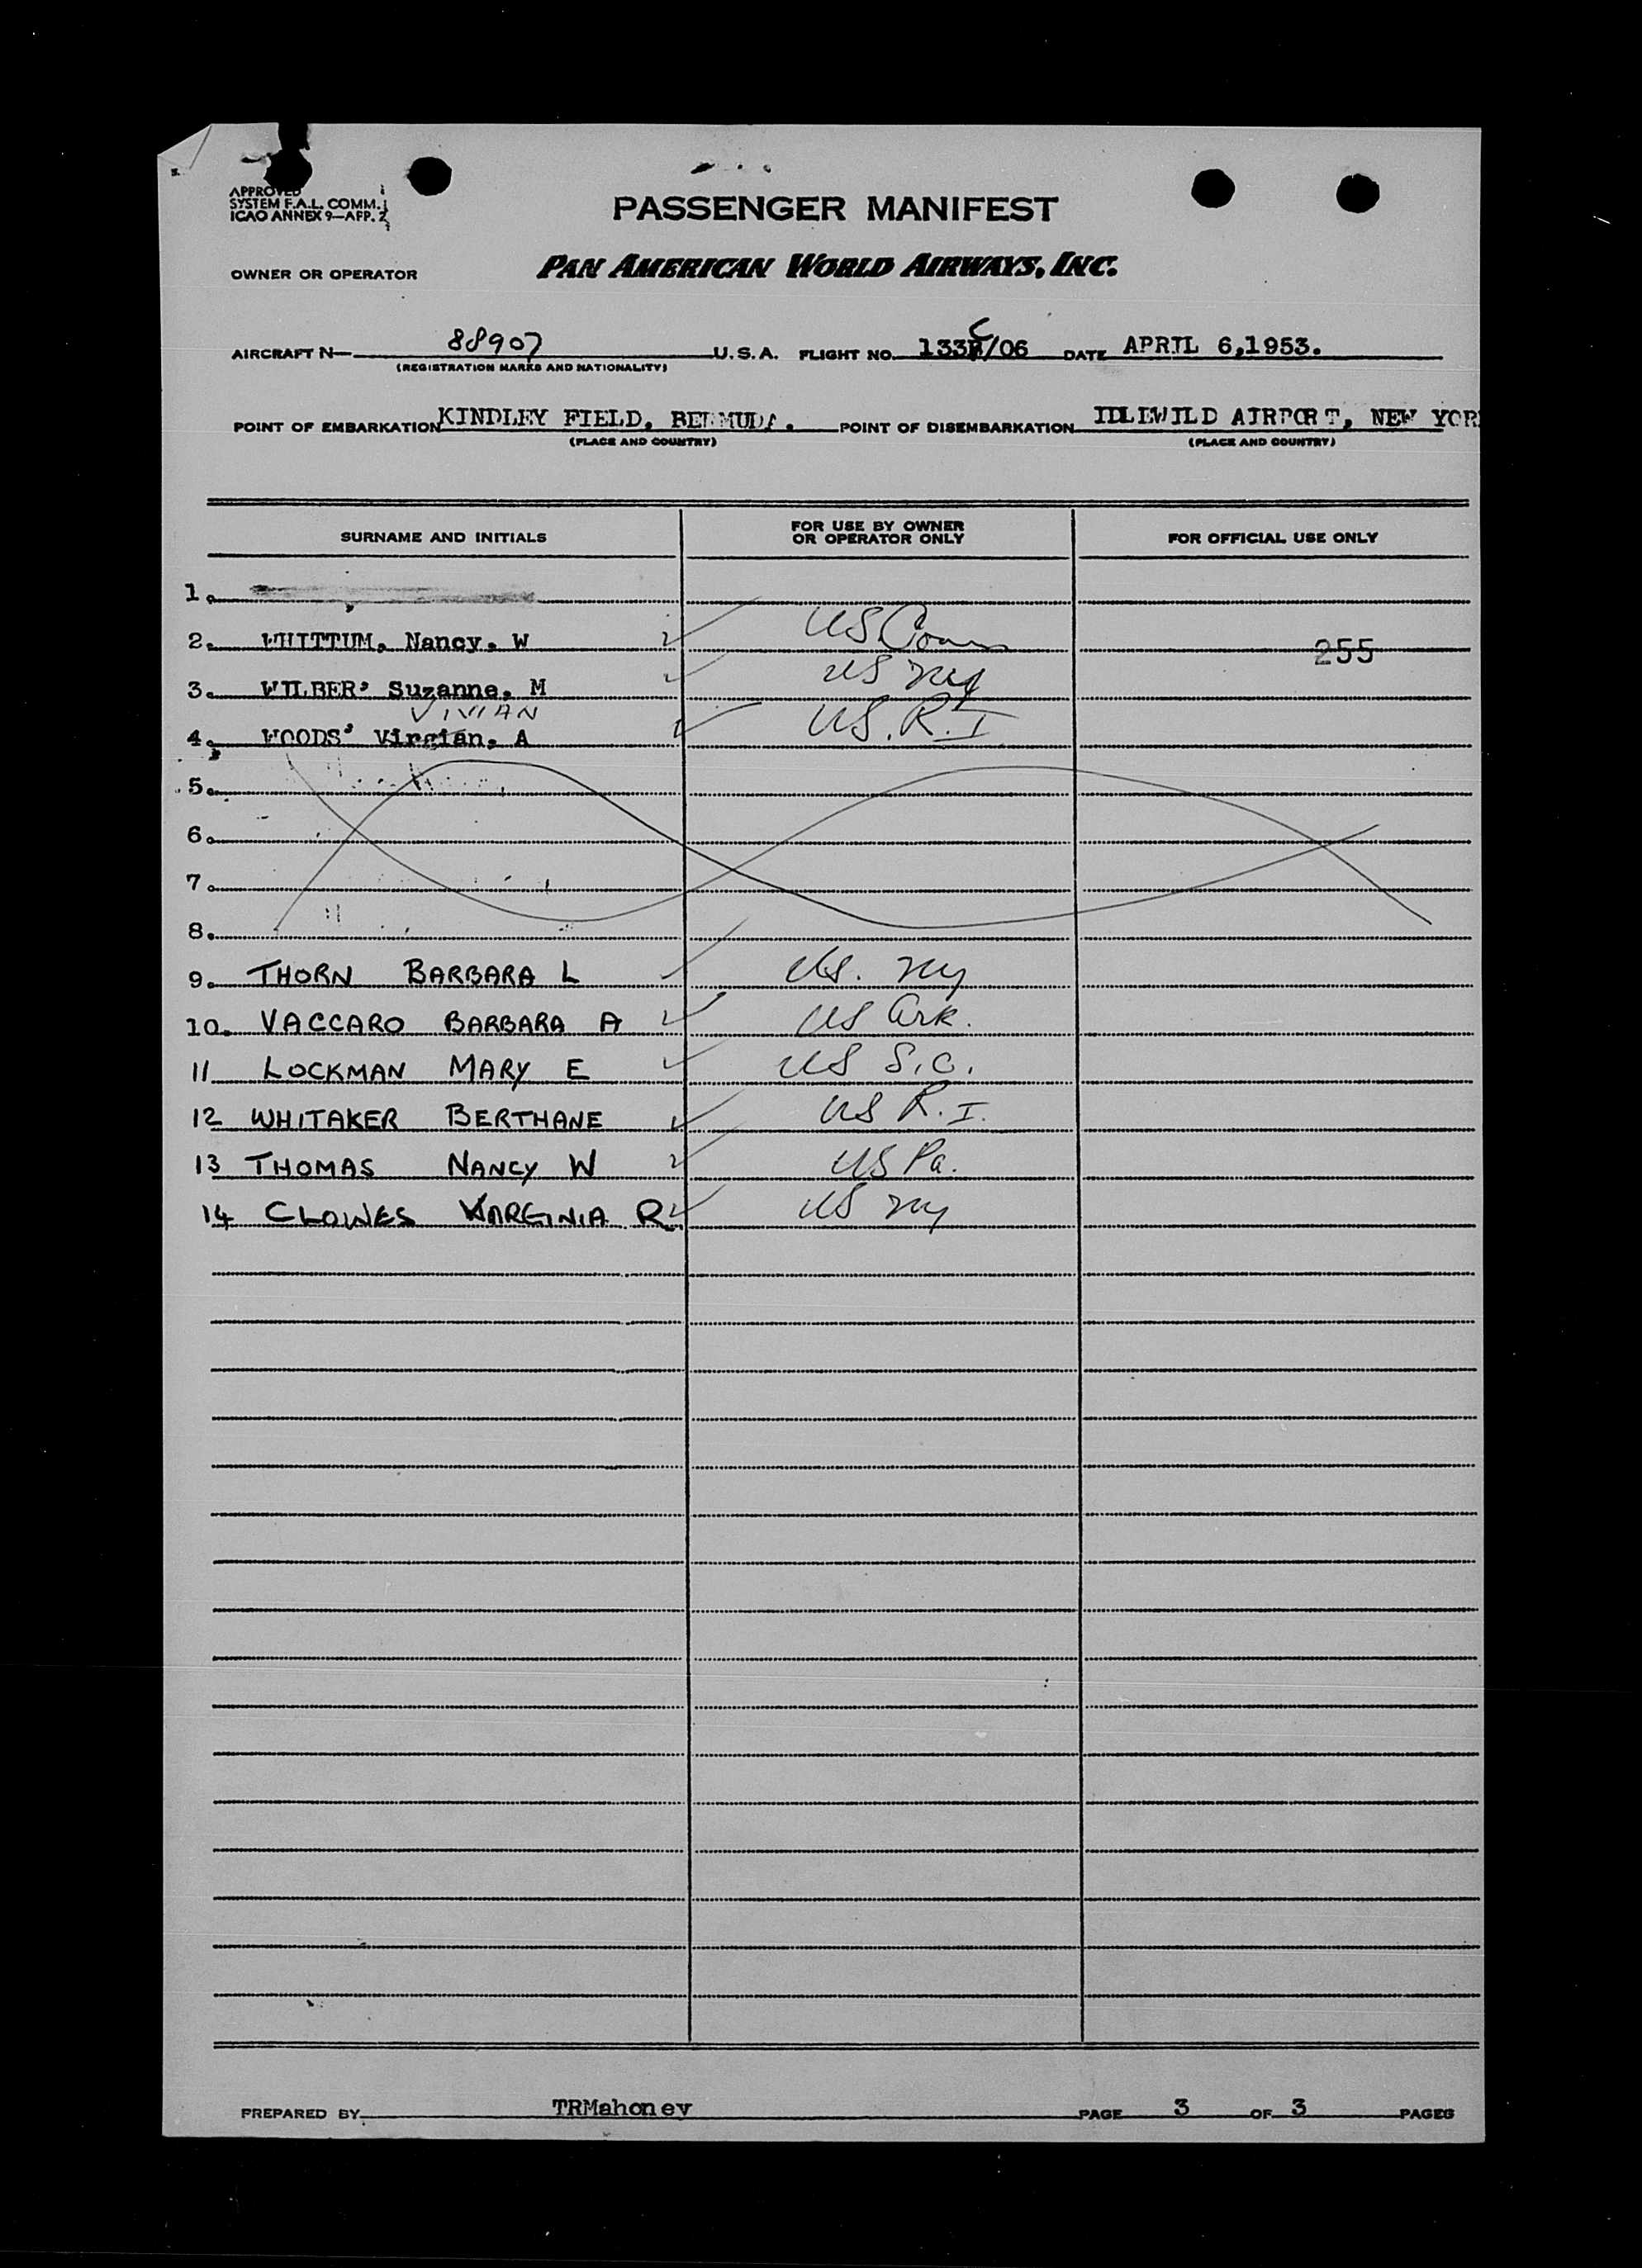 APPROVED
SYSTEM F.A.L. COMM.
ICAO ANNEX 9—APP. 2
PASSENGER MANIFEST
OWNER OR OPERATOR PAN AMERICAN WORLD AIRWAYS, INC.
AIRCRAFT N— 88907 U.S.A. FLIGHT NO. 133C/06 DATE APRIL 6,1953.
(REGISTRATION MARKS AND NATIONALITY)
POINT OF EMBARKATION KINDLEY FIELD, BERMUDA. POINT OF DISEMBARKATION IDLEWILD AIRPORT, NEW YOR
(PLACE AND COUNTRY) (PLACE AND COUNTRY)
SURNAME AND INITIALS FOR USE BY OWNER OR OPERATOR ONLY FOR OFFICIAL USE ONLY
1.
2. WHITTUM, Nancy. W US Conn 255
3. WILBER' Suzanne, M US NY
VIVIAN
4. WOODS' Virgian, A US. R.I
5.
6.
7.
8.
9. THORN BARBARA L US. NY
10. VACCARO BARBARA A US Ark.
11 LOCKMAN MARY E US S.C.
12 WHITAKER BERTHANE US R.I.
13 THOMAS NANCY W US Pa.
14 CLOWES VIRGINIA R. US NY
PREPARED BY TRMahoney PAGE 3 OF 3 PAGES